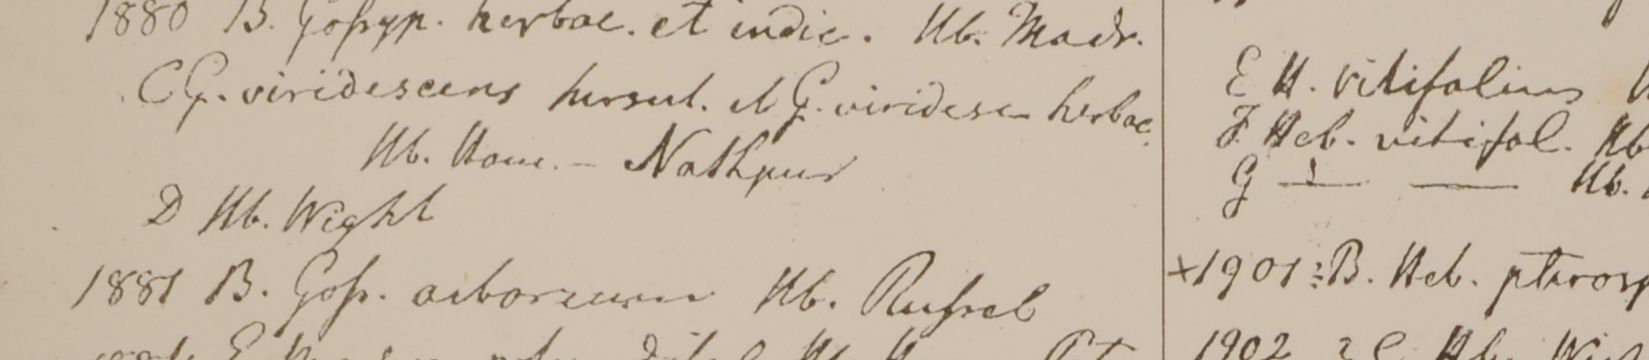 1880 B. Goſsyp. herbac. et indic. Hb. Madr.
C G. viridescens hirsut. et G. viridesc herbac.
Hb. Ham. — Nathpur
D Hb. Wight
1881 B. Goſs. arboreum Hb. Rufsel
E H. vitifolius
F Heb. vitifol. Hb
G — — Hb.
×1901 B. Heb. pterosp
1902 C Hb.